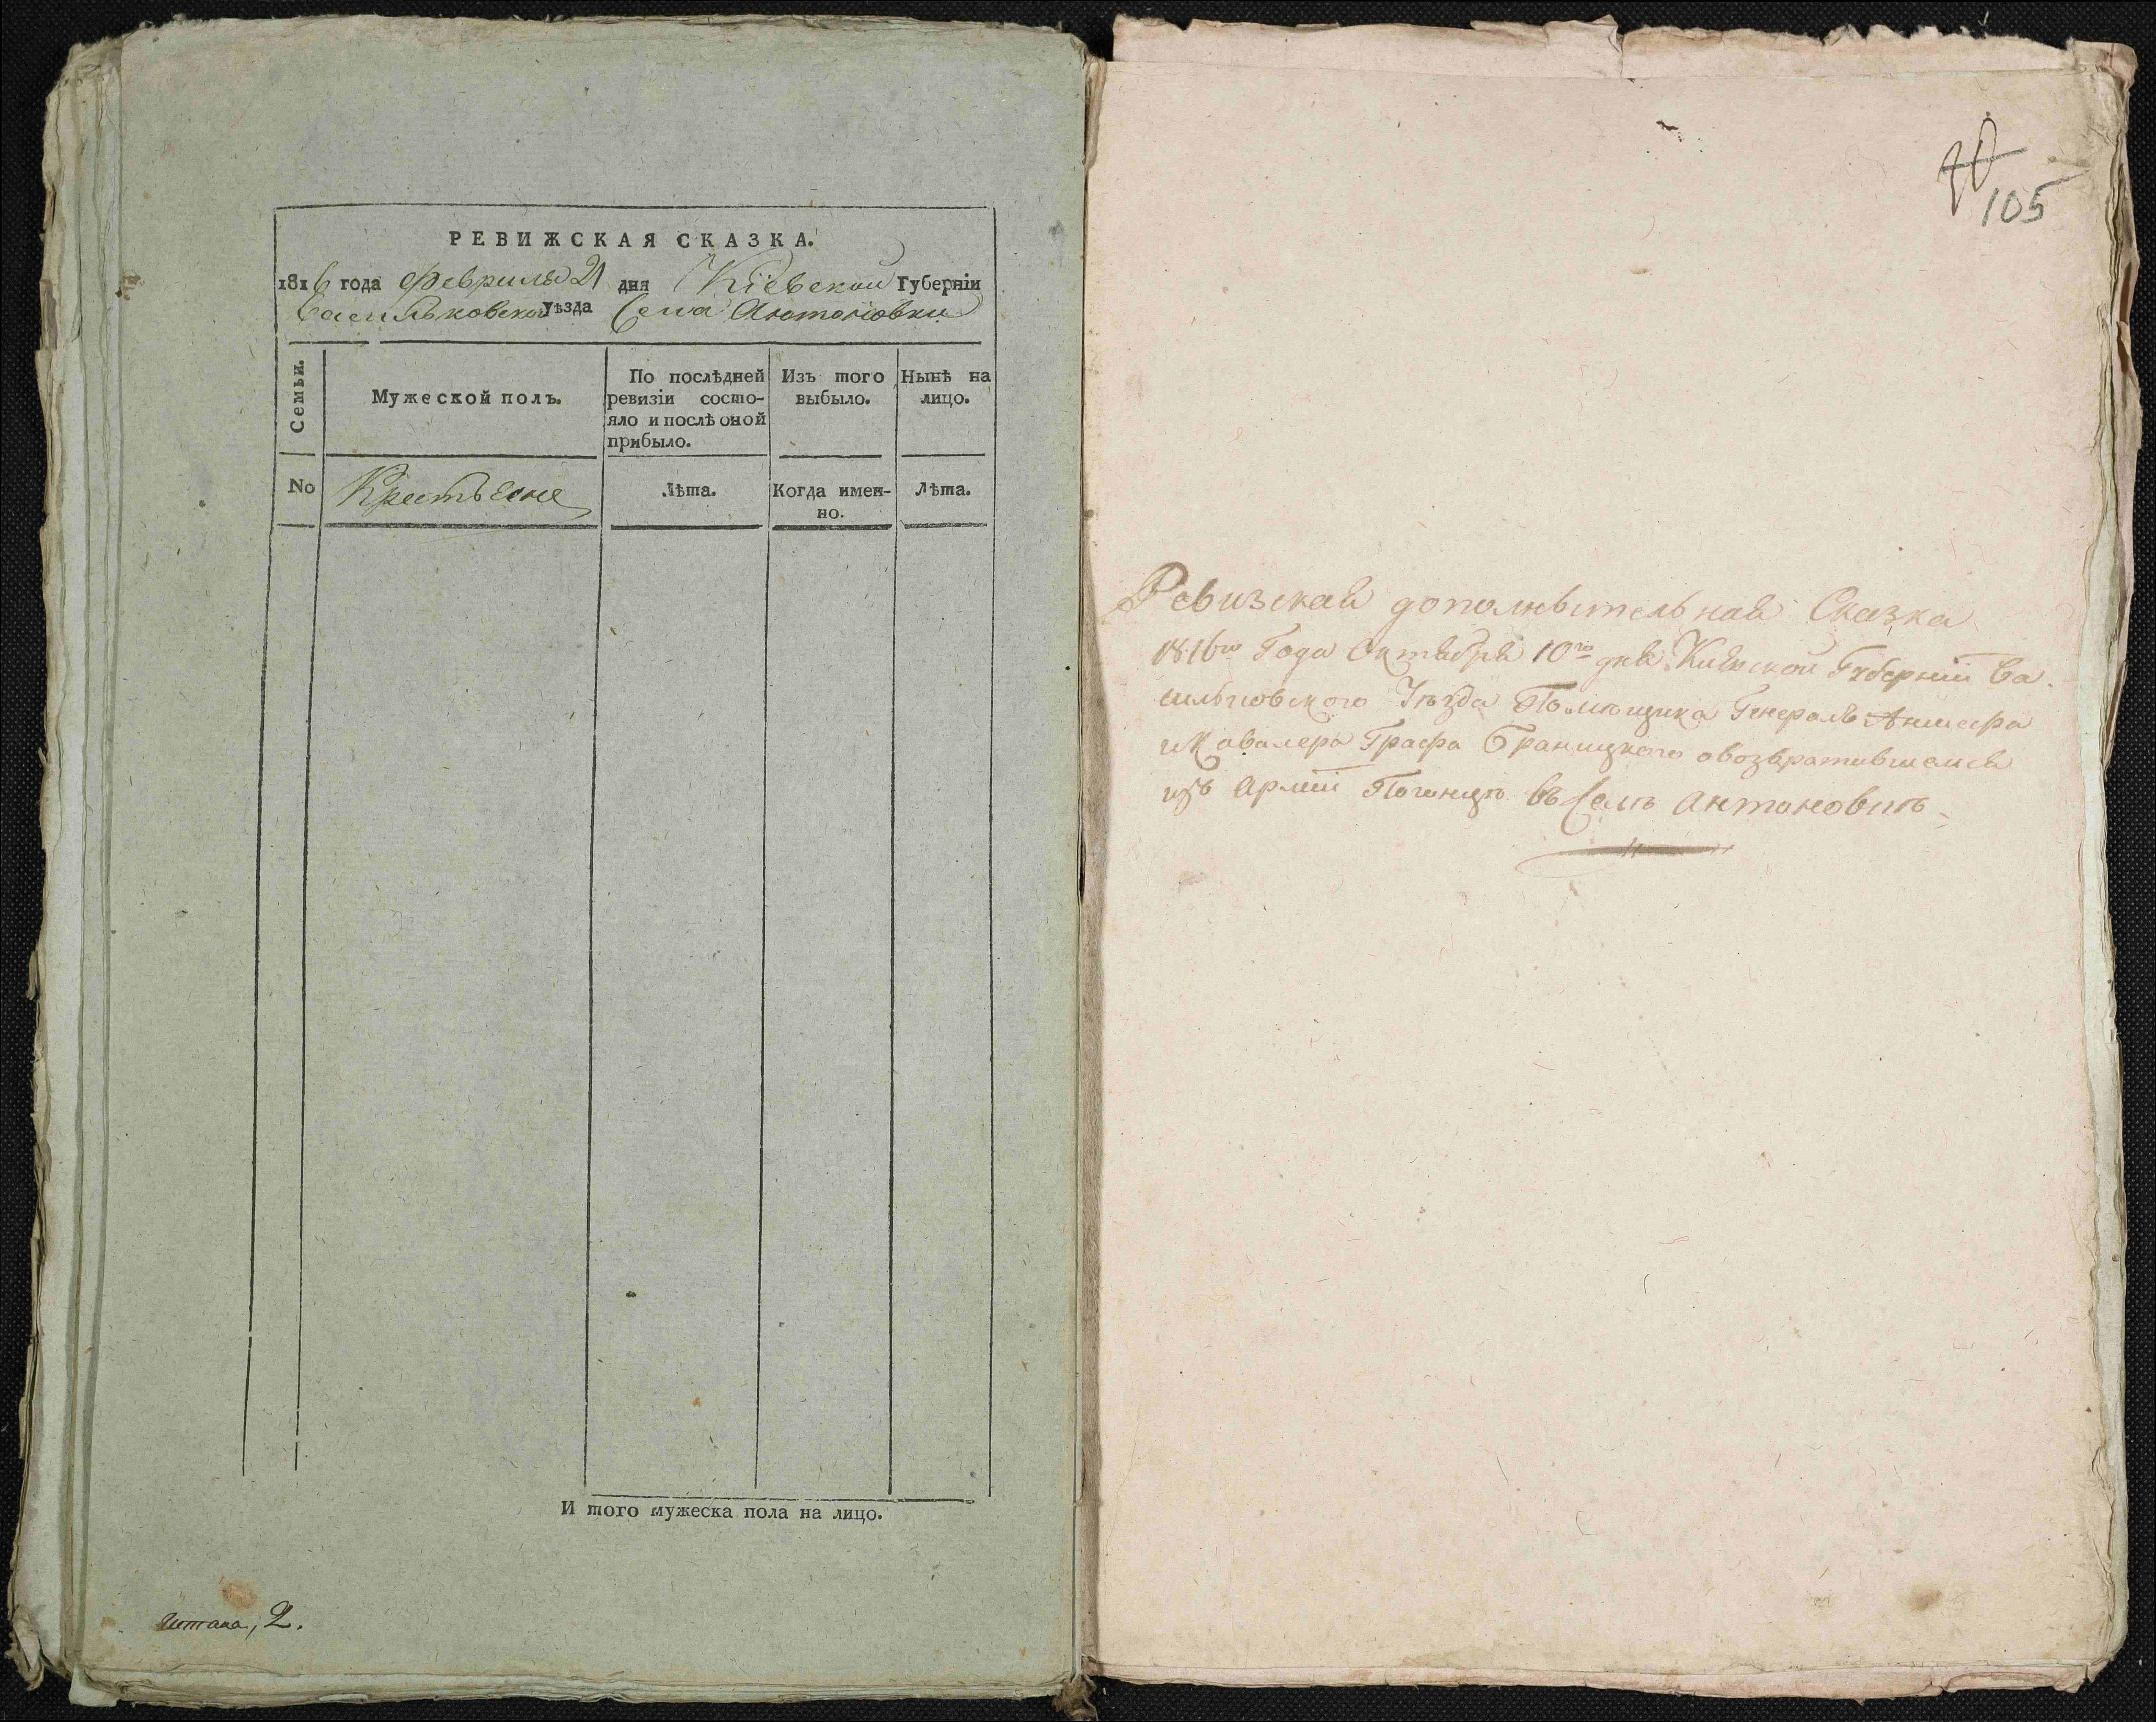 РЕВИЖСКАЯ СКАЗКА.
1816 года Февраля 21 дня Кіевской Губерніи
Васильковской уѣзда Села Антоновки
Семьи.
Мужеской полъ.
По послѣдней ревизіи состо-
яло и послѣ оной
прибыло.
Изъ того
выбыло.
Нынѣ на
лицо.
No
Крестьяне
Лѣта.
Когда имен-
но.
Лѣта.
И того мужеска пола на лицо.
читала, 2.
105
Ревизская дополнительная Сказка
1816го Года Октября 10го дня Киевской Губернии Ва
сильковского Уѣзда Помѣщика Генералъ Аншефа
и Кавалера Графа Браницкого о возвратившемся
изъ Армии Погонцѣ въ Селѣ Антоновкѣ